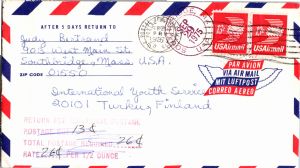 AFTER 5 DAYS RETURN TO
Judy Bertrand
408 West Main St.
Southbridge, Mass. U.S.A.
ZIP CODE 01550
USAirmail
USAirmail
PAR AVION
VIA AIR MAIL
MIT LUFTPOST
CORREO AEREO
International Youth Service
20101 Turku, Finland
POSTAGE 13¢
TOTAL POSTAGE REQUIRED 26¢
RATE 26¢ PER 1/2 OUNCE